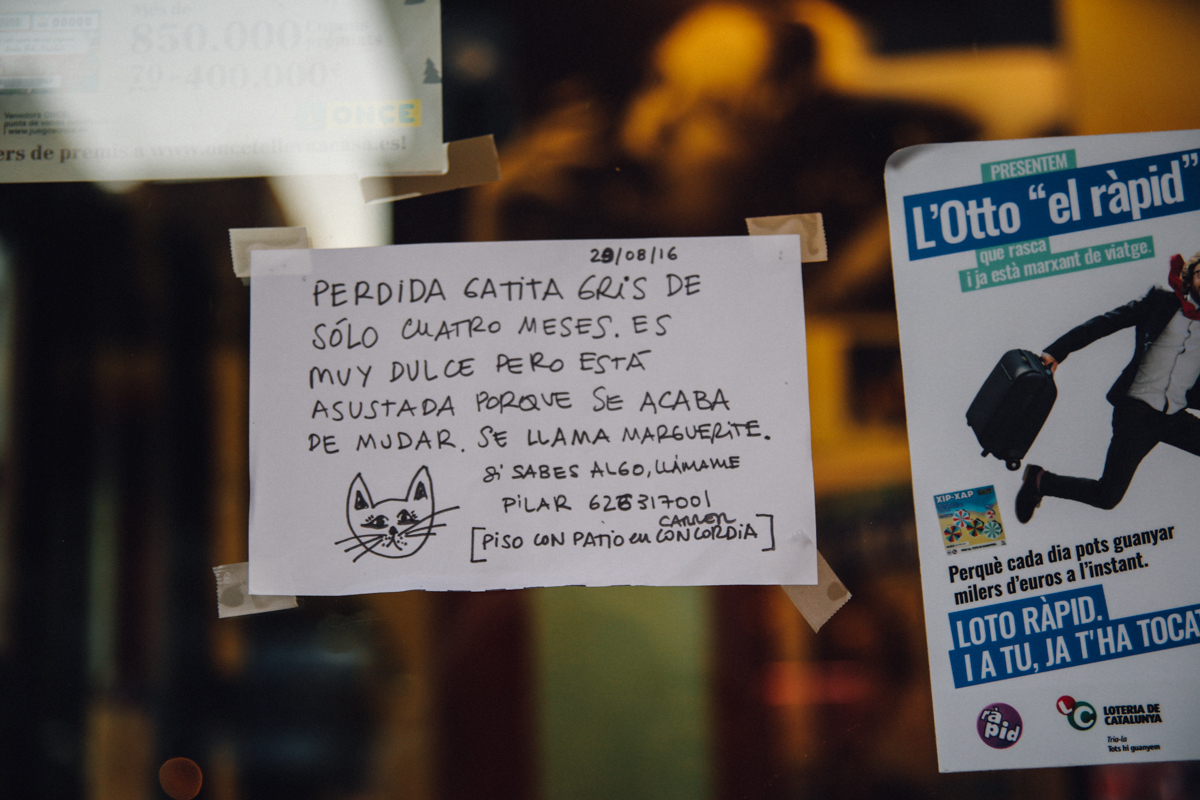 Més de
850.000€
70 400.000€
ONCE
ers de premis a www.oncetellevaacasa.es!
29/08/16
PERDIDA GATITA GRIS DE
SÓLO CUATRO MESES. ES
MUY DULCE PERO ESTÁ
ASUSTADA PORQUE SE ACABA
DE MUDAR. SE LLAMA MARGUERITE.
Si SABES ALGO, LLÁMAME
PILAR 628317001
[PISO CON PATIO en CARRER CONCORDIA]
PRESENTEM
L'Otto "el ràpid"
que rasca
i ja està marxant de viatge.
XIP-XAP
Perquè cada dia pots guanyar
milers d'euros a l'instant.
LOTO RÀPID.
I A TU, JA T'HA TOCAT
ràpid
LOTERIA DE
CATALUNYA
Tria-la
Tots hi guanyem